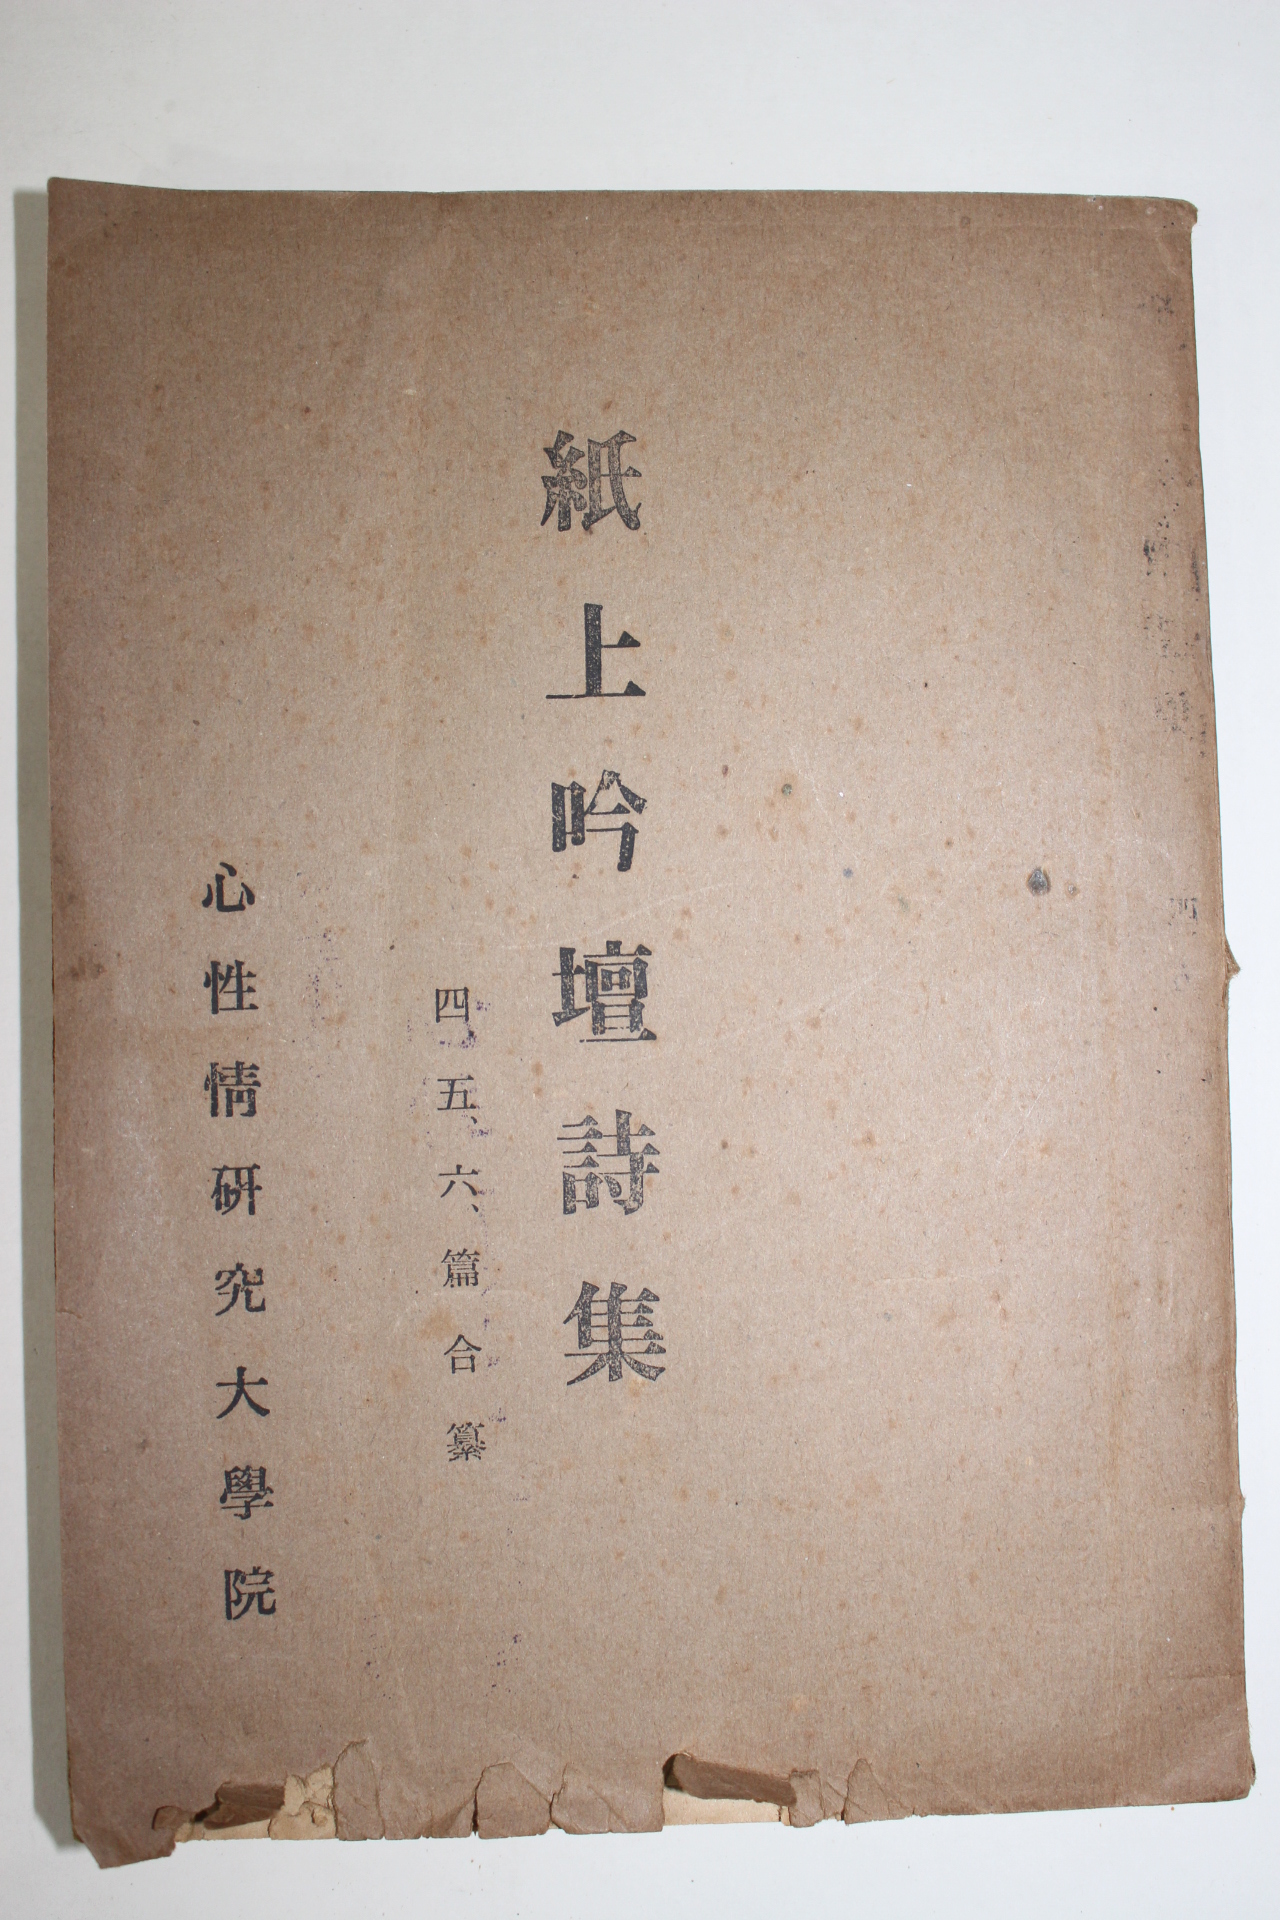 紙上吟壇詩集
四、五、六、篇合纂
心性情硏究大學院